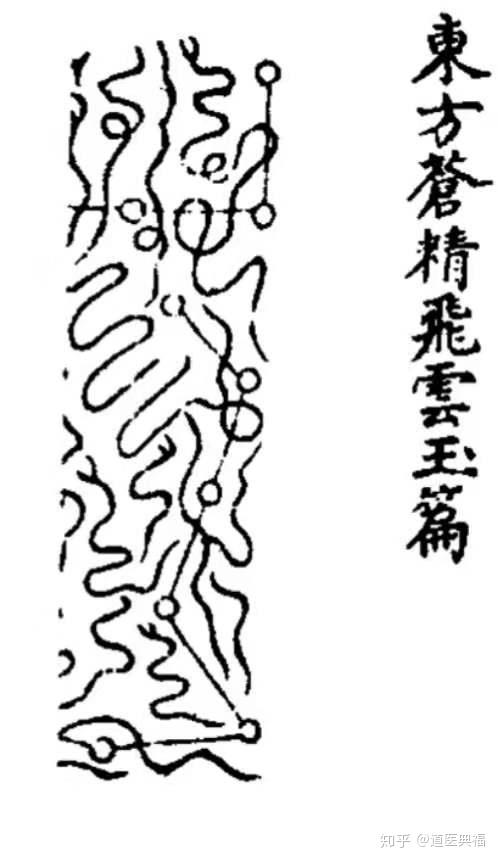 東方蒼精飛雲玉篇
知乎 @道医興福